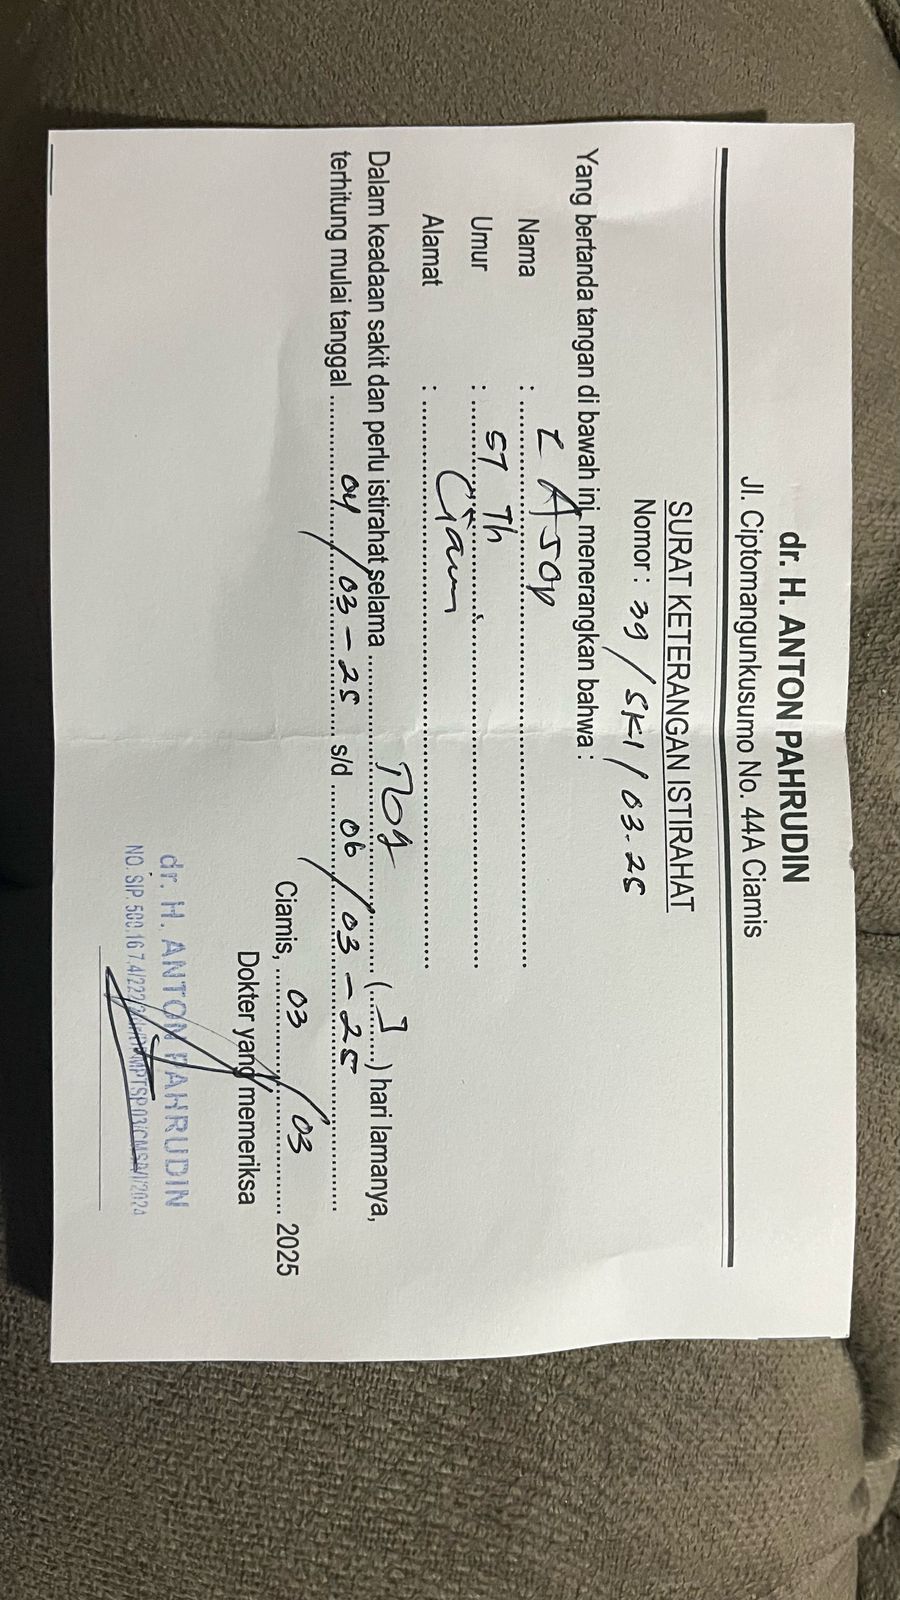 dr. H. ANTON PAHRUDIN
Jl. Ciptomangunkusumo No. 44A Ciamis
SURAT KETERANGAN ISTIRAHAT
Nomor : 39 / SKI / 03-25
Yang bertanda tangan di bawah ini, menerangkan bahwa :
Nama :
Umur : 57 Th
Alamat :
Dalam keadaan sakit dan perlu istirahat selama ( ) hari lamanya,
terhitung mulai tanggal 04 / 03 - 25 s/d 06 / 03 - 25
Ciamis, 03 / 03 2025
Dokter yang memeriksa
dr. H. ANTON PAHRUDIN
NO. SIP.